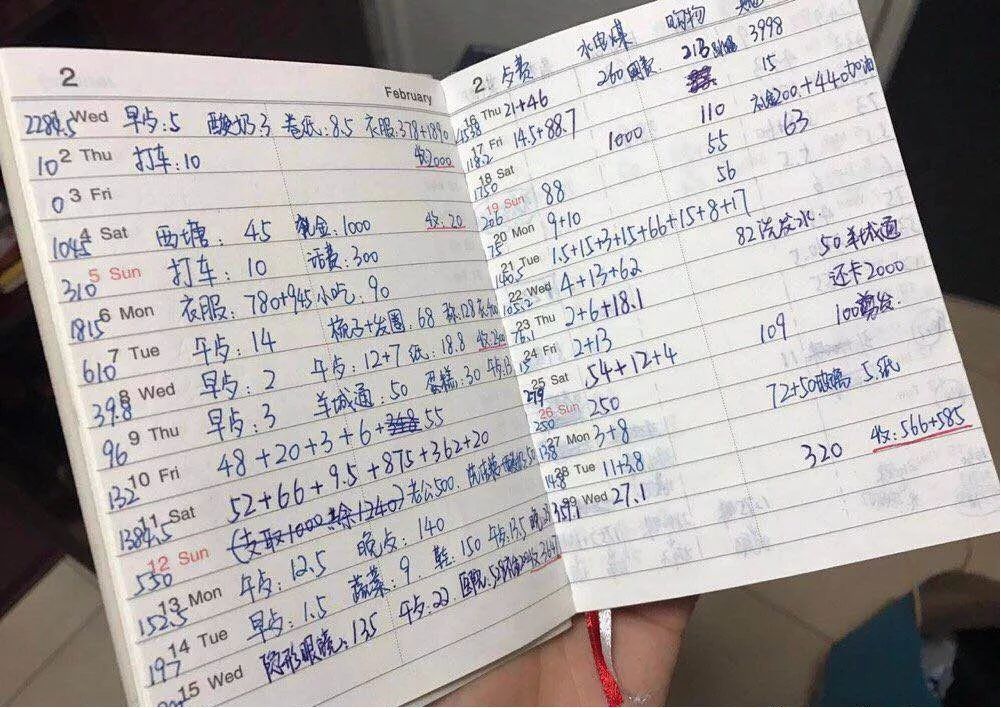 2
February
2284.5 Wed 早点:5 酸奶:3 卷纸:8.5 衣服:378+1890
10 2 Thu 打车:10 收2000
0 3 Fri
1045 4 Sat 西塘:45 现金:1000 收:20
310 5 Sun 打车:10 话费:300
1815 6 Mon 衣服:780+945 小吃:90
610 7 Tue 午点:14 梳子+发圈:68
39.8 8 Wed 早点:2 午点:12+7 纸:18.8
96 9 Thu 早点:3 羊城通:50 蛋糕:30
132 10 Fri 48+20+3+6+55
1384.5 11 Sat 52+66+9.5+875+362+20
550 12 Sun (支取1000共余1240) 老公500
152.5 13 Mon 午点:12.5 晚点:140
197 14 Tue 早点:1.5 蔬菜:9 鞋:150 午点:13.5
15 Wed 隐形眼镜:135 午点:23
2 水电煤 购物
16 Thu 21+46 260网费 213 3998
118.2 17 Fri 14.5+88.7 15
1750 18 Sat 1000 110 礼金200+440加油
206 19 Sun 88 55 63
75 20 Mon 9+10 56
140.5 21 Tue 1.5+15+3+15+66+15+8+17
22 Wed 4+13+62 82洗发水 50羊城通
23 Thu 2+6+18.1 还卡2000
15 24 Fri 2+13 100剪发
279 25 Sat 54+12+4 109
250 26 Sun 250 72+50玻璃 5.纸
138 27 Mon 3+8
14.8 28 Tue 11+3.8 320 收:566+585
Wed 27.1